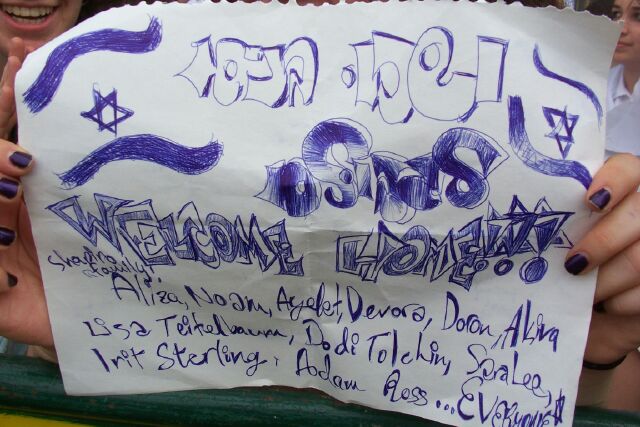 ושבו בנים
WELCOME HOME!!!
shapira
family!
Aliza, Noam, Ayelet, Devora, Doron, Akiva
Lisa Teitelbaum, Dodi Tolchin, SaraLee,
Irit Sterling, Adam Ross ...EVERYONE!